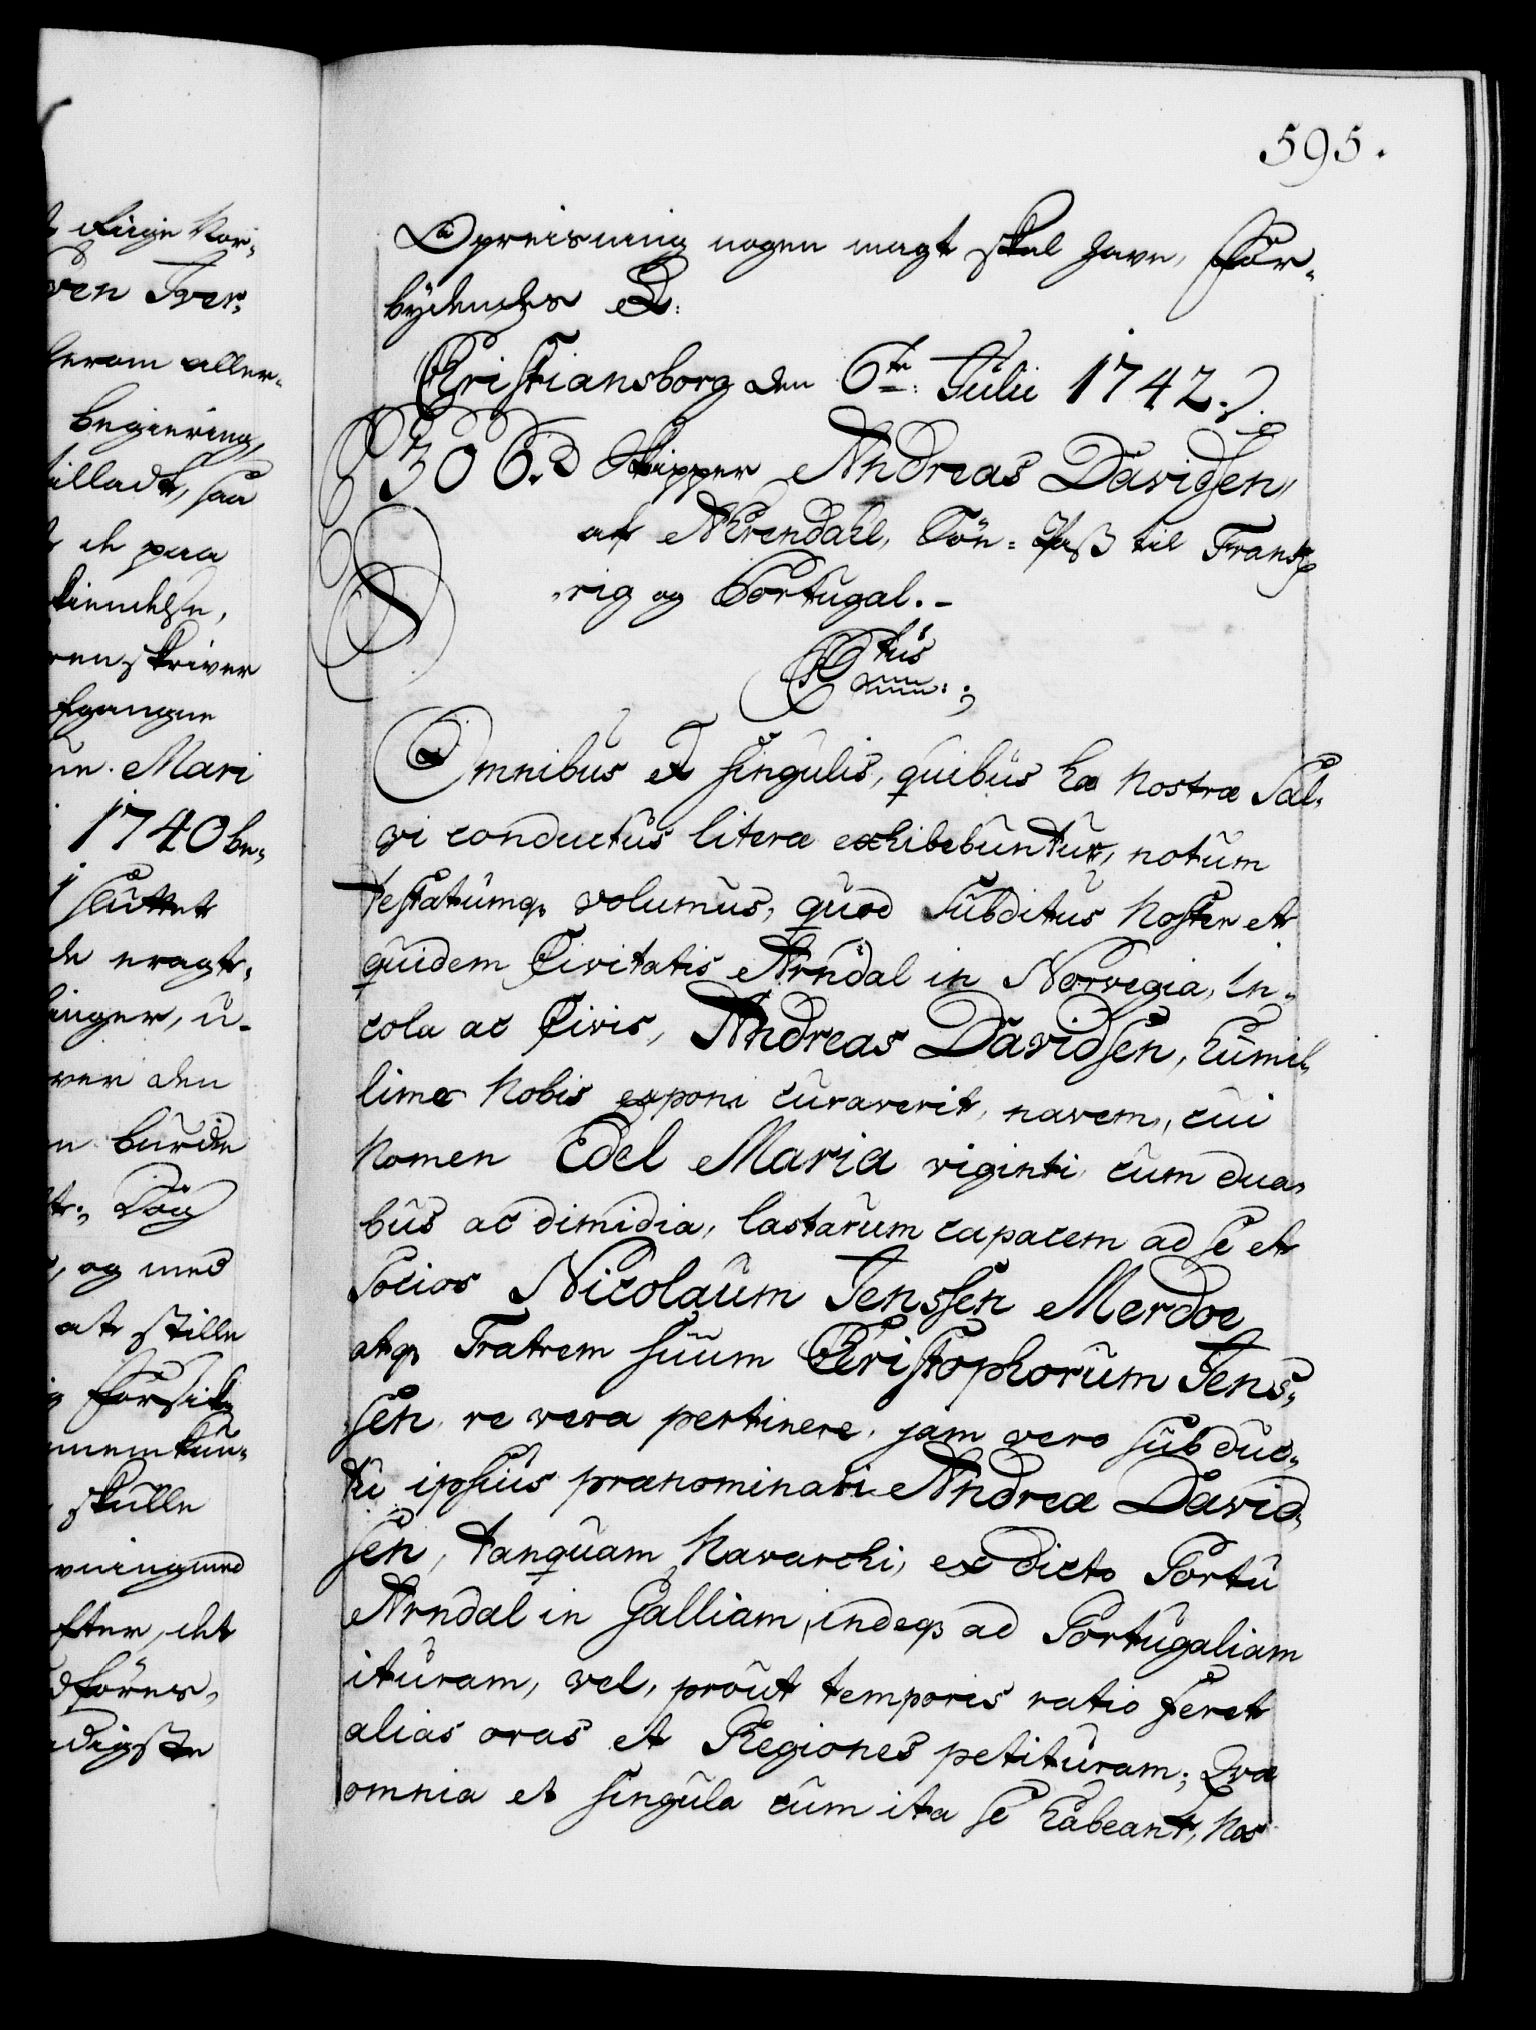 595.
Opreisning nogen magt skal have, For-
bydendes &:
Christiansborg den 6te: Julii 1742.
306. Skipper Andreas Davidsen,
af Ahrendahl, Söe-Pass til Frank-
rig og Portugal.-
Omnibus et singulis, quibus hæ Nostræ Sal-
vi conductus literæ exhibebuntur, notum
testatumq; volumus, quod Subditus Noster et
quidem Civitatis Arndal in Norvegia, In-
cola ac Civis, Andreas Davidsen, humil-
lime Nobis exponi curaverit, navem, cui
Nomen Edel Maria viginti cum dua-
bus ac dimidia, lastarum capacem ad se et
Socios Nicolaum Jenssen Merdoe
atq; Fratrem suum Christophorum Jens-
sen re vera pertinere, jam vero sub duc-
tu ipsius prænominati Andreæ David-
sen, tanquam Navarchi, ex dicto Portu
Arndal in Galliam, indeq; ad Portugaliam
ituram, vel, prout temporis ratio feret
alias oras et Regiones petituram; Qvæ
omnia et singula cum ita se habeant, Nos
ven Tver-
derom aller-
begiering,
tilladt, saa
de paa
kiendelse,
renskriver
Mari
1740 be-
sluttet
eragt-
inger, u-
ver den
burde
og med
at stille
skulle
efter, det